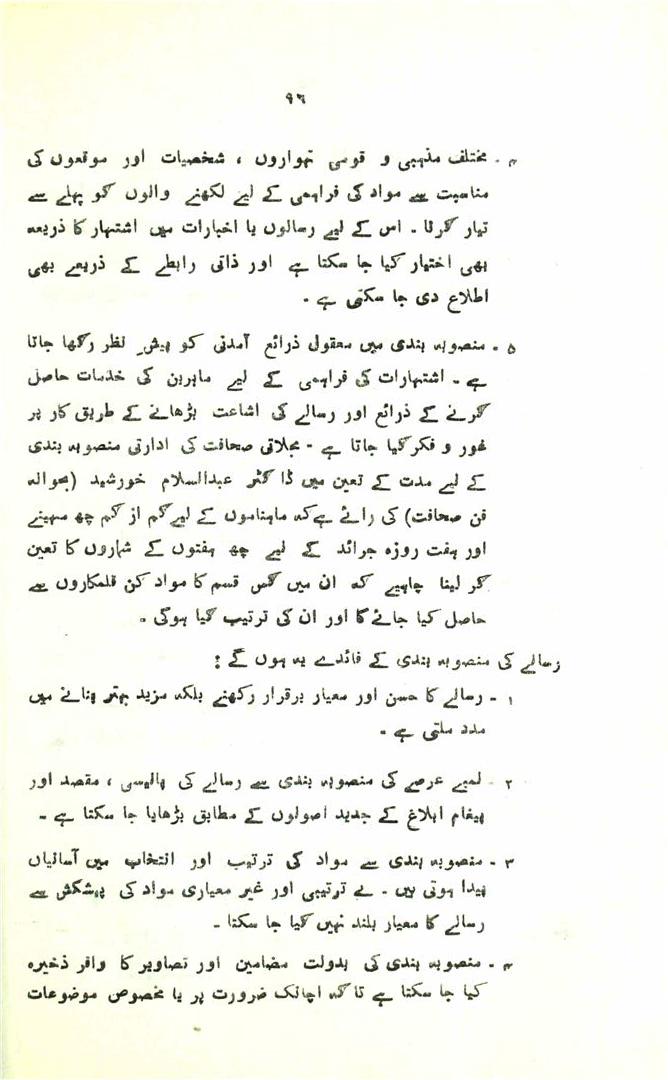 ۹۶
۴ ۔ مختلف مذہبی و قومی تہواروں ، شخصیات اور موقعوں کی
مناسبت سے مواد کی فراہمی کے لیے لکھنے والوں کو پہلے سے
تیار کرنا ۔ اس کے لیے رسالوں یا اخبارات میں اشتہار کا ذریعہ
بھی اختیار کیا جا سکتا ہے اور ذاتی رابطے کے ذریعے بھی
اطلاع دی جا سکتی ہے ۔
۵ ۔ منصوبہ بندی میں معقول ذرائع آمدنی کو پیشِ نظر رکھا جاتا
ہے ۔ اشتہارات کی فراہمی کے لیے ماہرین کی خدمات حاصل
کرنے کے ذرائع اور رسالے کی اشاعت بڑھانے کے طریق کار پر
غور و فکر کیا جاتا ہے ۔ مجلاتی صحافت کی ادارتی منصوبہ بندی
کے لیے مدت کے تعین میں ڈاکٹر عبدالسلام خورشید (بحوالہ
فن صحافت) کی رائے ہے کہ ماہناموں کے لیے کم از کم چھ مہینے
اور ہفت روزہ جرائد کے لیے چھ ہفتوں کے شماروں کا تعین
کر لینا چاہیے کہ ان میں کس قسم کا مواد کن قلمکاروں سے
حاصل کیا جائے گا اور ان کی ترتیب کیا ہوگی ۔
رسالے کی منصوبہ بندی کے فائدے یہ ہوں گے :
۱ ۔ رسالے کا حسن اور معیار برقرار رکھنے بلکہ مزید بہتر بنانے میں
مدد ملتی ہے ۔
۲ ۔ لمبے عرصے کی منصوبہ بندی سے رسالے کی پالیسی ، مقصد اور
پیغام ابلاغ کے جدید اصولوں کے مطابق بڑھایا جا سکتا ہے ۔
۳ ۔ منصوبہ بندی سے مواد کی ترتیب اور انتخاب میں آسانیاں
پیدا ہوتی ہیں ۔ بے ترتیبی اور غیر معیاری مواد کی پیشکش سے
رسالے کا معیار بلند نہیں کیا جا سکتا ۔
۴ ۔ منصوبہ بندی کی بدولت مضامین اور تصاویر کا وافر ذخیرہ
کیا جا سکتا ہے تاکہ اچانک ضرورت پر یا مخصوص موضوعات